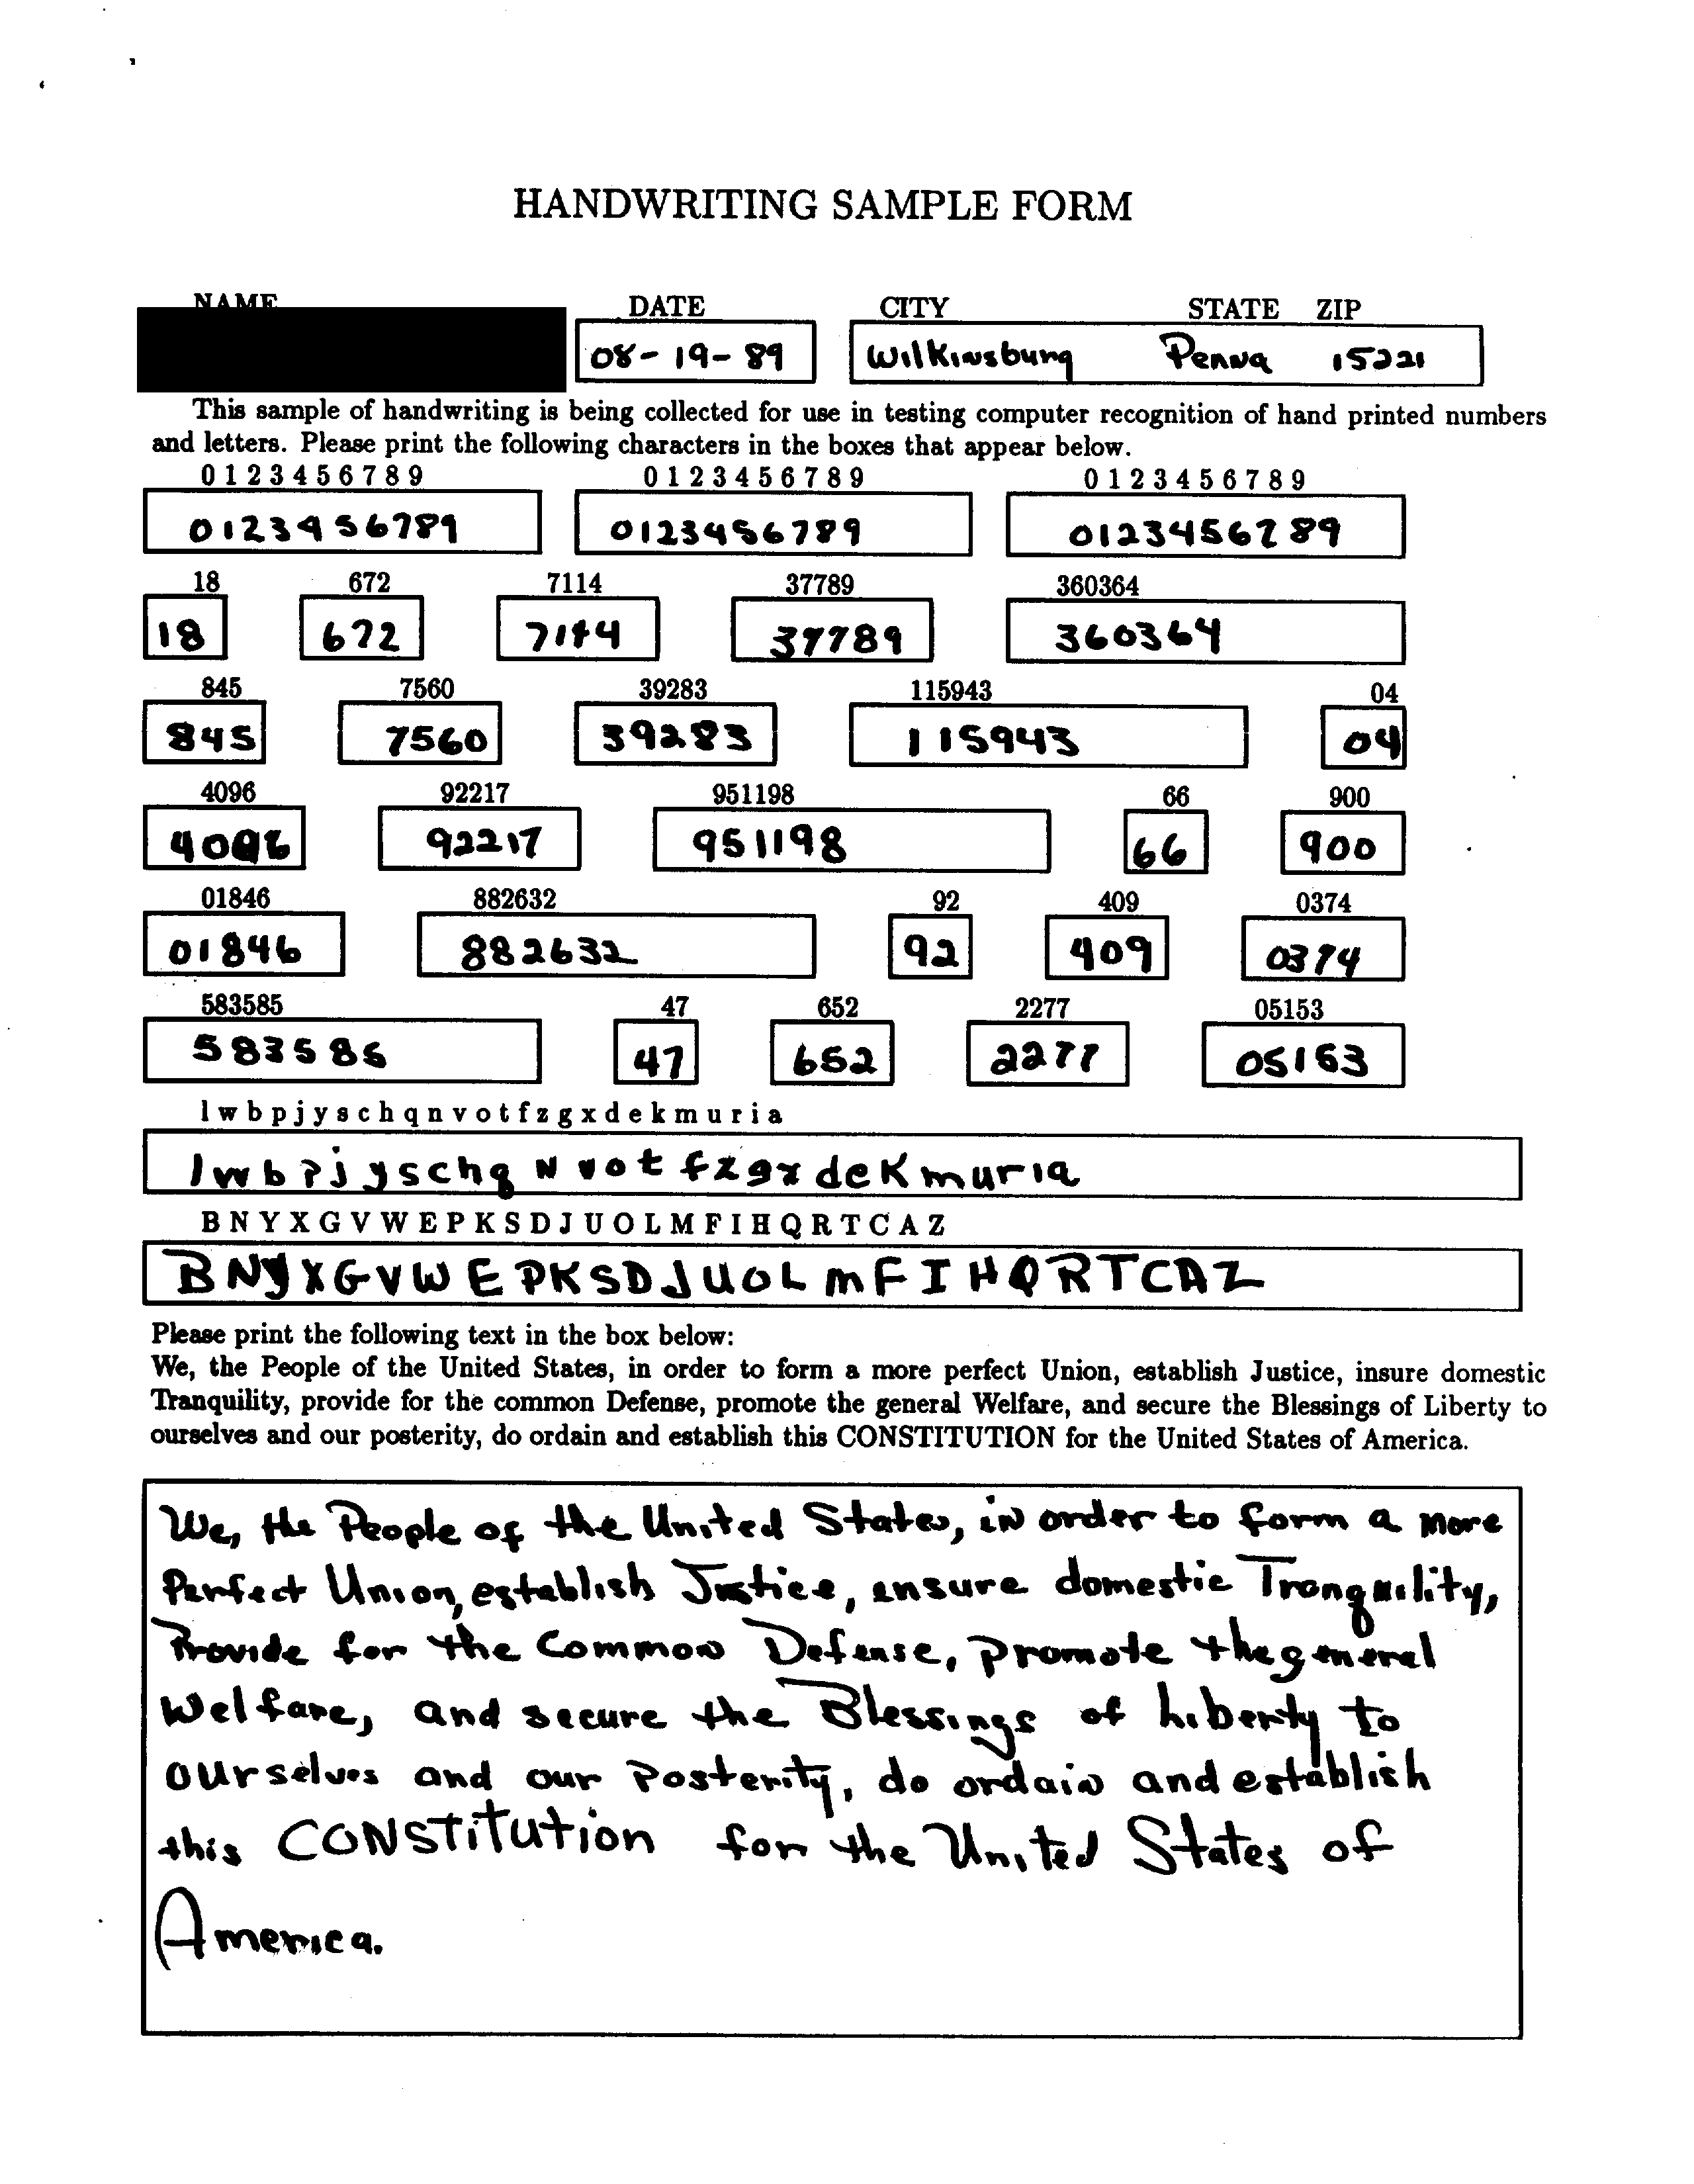 HANDWRITING SAMPLE FORM
NAME DATE CITY STATE ZIP
08-19-89 Wilkinsburg Penna 15221
This sample of handwriting is being collected for use in testing computer recognition of hand printed numbers
and letters. Please print the following characters in the boxes that appear below.
0 1 2 3 4 5 6 7 8 9 0 1 2 3 4 5 6 7 8 9 0 1 2 3 4 5 6 7 8 9
0123456789 0123456789 0123456789
18 672 7114 37789 360364
18 672 7114 37789 360364
845 7560 39283 115943 04
845 7560 39283 115943 04
4096 92217 951198 66 900
4096 92217 951198 66 900
01846 882632 92 409 0374
01846 882632 92 409 0374
583585 47 652 2277 05153
583585 47 652 2277 05153
l w b p j y s c h q n v o t f z g x d e k m u r i a
l w b p j y s c h q N v o t f z g x d e K m u r i a
B N Y X G V W E P K S D J U O L M F I H Q R T C A Z
B N Y X G V W E P K S D J U O L m F I H Q R T C A Z
Please print the following text in the box below:
We, the People of the United States, in order to form a more perfect Union, establish Justice, insure domestic
Tranquility, provide for the common Defense, promote the general Welfare, and secure the Blessings of Liberty to
ourselves and our posterity, do ordain and establish this CONSTITUTION for the United States of America.
We, the People of the United States, in order to form a more
Perfect Union, establish Justice, ensure domestic Tranquility,
Provide for the Common Defense, promote the general
Welfare, and secure the Blessings of Liberty to
ourselves and our Posterity, do ordain and establish
this CONStitution for the United States of
America.